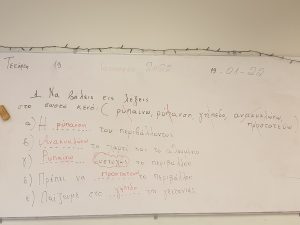 Τετάρτη 19 Ιανουαρίου 2022 19-01-22
1. Να βάλεις τις λέξεις
στο σωστό κενό. ( ρύπανση, ρυπαίνω, γήπεδο, ανακυκλώνω,
προστατεύω
α) Η ρύπανση του περιβάλλοντος
β) Ανακυκλώνω το χαρτί και το αλουμίνιο
γ) Ρυπαίνω το περιβάλλον
δ) Πρέπει να προστατεύω το περιβάλλον
ε) Παίζουμε στο γήπεδο της γειτονιάς